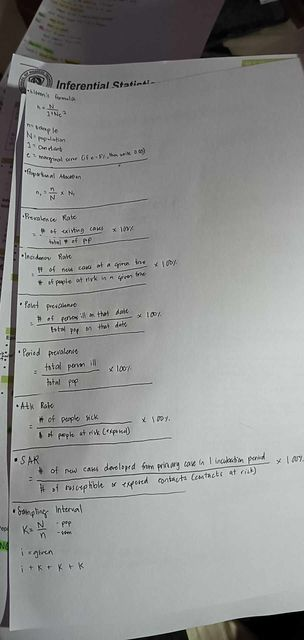 Inferential Statisti
• Slovin's Formula
n = N
1+Ne²
n = sample
N = population
1 = constant
e = marginal error (if e = 5%, then write 0.05)
• Proportional Allocation
nᵢ = n/N × Nᵢ
• Prevalence Rate
= # of existing cases × 100%
total # of pop
• Incidence Rate
# of new cases at a given time × 100%
# of people at risk in a given time
• Point prevalence
= # of person ill on that date × 100%
total pop on that date
• Period prevalence
= total person ill × 100%
total pop
• Attk Rate
= # of people sick × 100%
# of people at risk (exposed)
• SAR
= # of new cases developed from primary case in 1 incubation period × 100%
# of susceptible or exposed contacts (contacts at risk)
• Sampling Interval
K = N - pop
n - sam
i = given
i + K + K + K